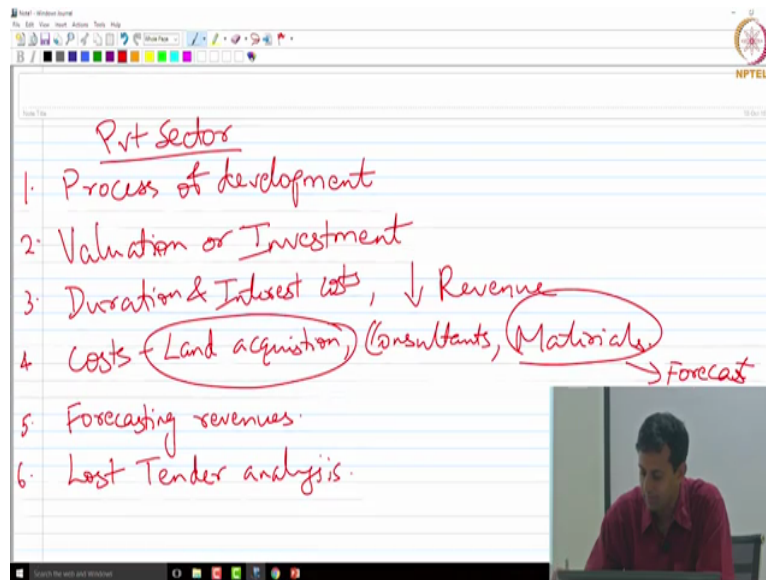 Note1 - Windows Journal
File Edit View Insert Actions Tools Help
NPTEL
Note Title
Pvt Sector
1. Process of development
2. Valuation or Investment
3. Duration & Interest costs, ↓ Revenue
4 Costs - Land acquistion, Consultants, Materials.
→ Forecast
5. Forecasting revenues.
6. Lost Tender analysis.
Search the web and Windows